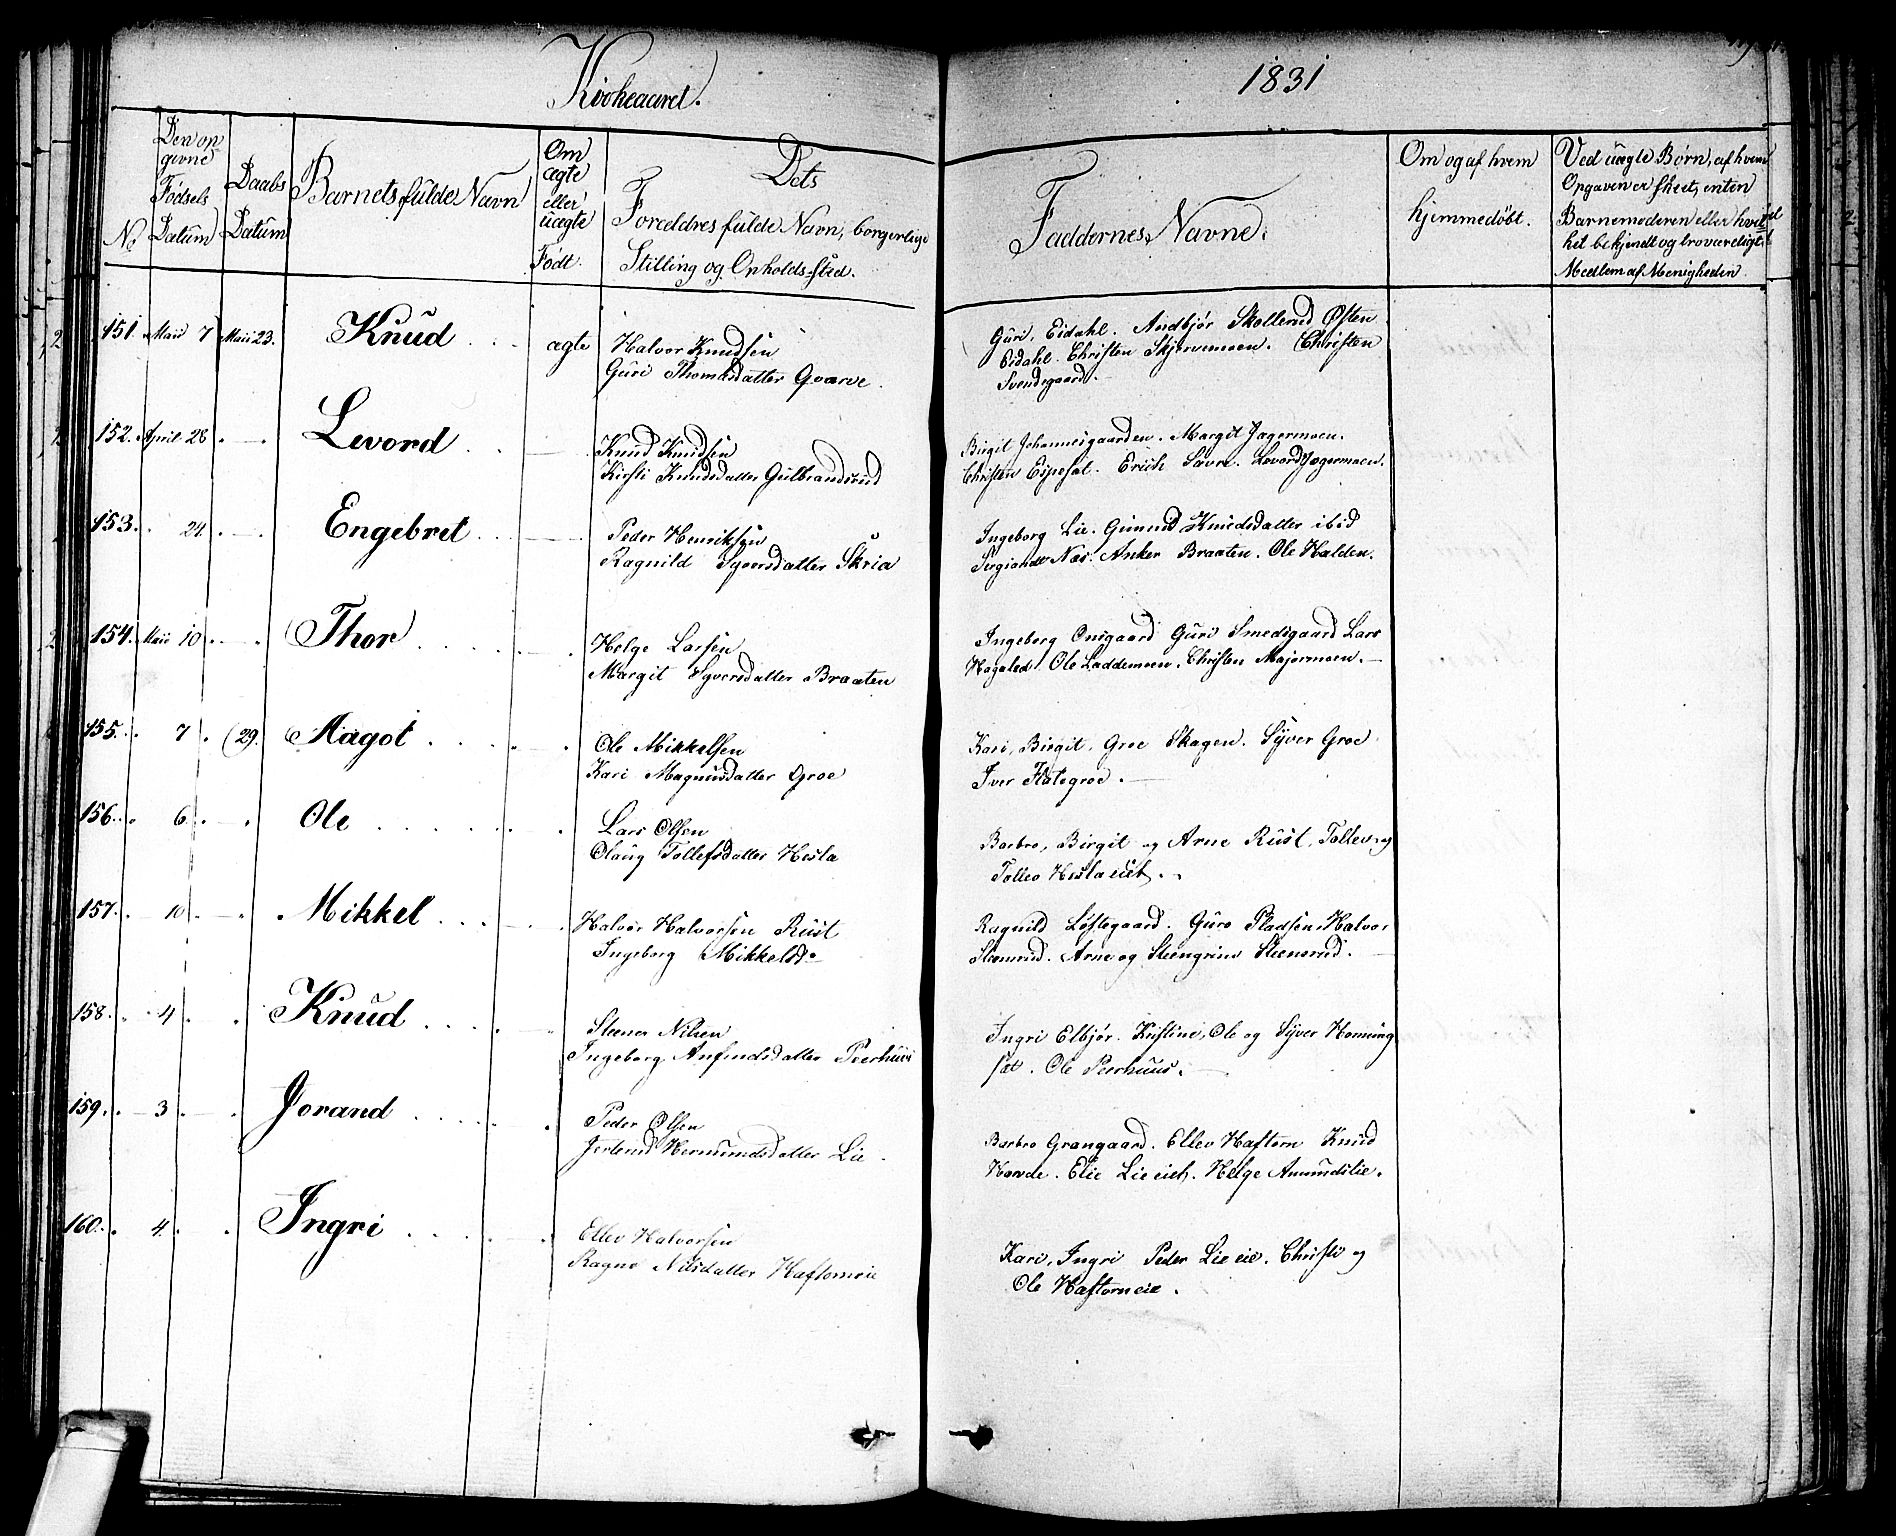 Kirkeaaret.
1831
No
Den opgivne Fødsels Datum
Daabs Datum
Barnets fulde Navn
Om ægte eller uægte Født.
Dets Forældres fulde Navn, borgerlige Stilling og Opholds-sted.
Faddernes Navne.
Om og af hvem hjemmedøbt.
Ved uægte Børn, af hvem Opgaven er skeet, enten Barnemoderen eller hvilket bekjendt og troværdigt Medlem af Menigheden
151. Maii 7 Maii 23. Knud . . . ægte
Halvor Knudsen
Guri Thomasdatter Qvarve.
Guri Eidahl. Andbjør Skollerud Østen
Eidahl. Christen Skjervemoen. Christen
Svendsgaard.
152. April 28 . — . Levord . . . —
Knud Knudsen
Kirsti Knudsdatter Gulbrandsrud
Birgit Johannesgaarden. Margit Jagermoen.
Christen Espeset. Erich Savre. Levord Jagermoen.
153. . 24. . — . Engebret . . . —
Peder Henriksen
Ragnild Syversdatter Skria
Ingeborg Lie. Gunnild Knudsdatter ibid
Næs. Anker Braaten. Ole Halden.
154. Maii 10 . — . Thor . . . . . . — .
Helge Larsen
Margit Syversdatter Braaten
Ingeborg Onsgaard Guri Smedsgaard Lars
Hagaled. Ole Laddemoen. Christen Majormoen. —
155. . 7 . (29. Aagot . . . . " .
Ole Mikkelsen
Kari Magnusdatter Groe
Kari, Birgit, Groe Skagen. Syver Groe
Iver Flategroe. —
156. . 6. . — " Ole . . . . . .
Lars Olsen
Olaug Tollefsdatter Hesla
Barbro, Birgit og Arne Rust, Tollev og
Tollev Heslaeiet. .
157. . — 10 . — " . Mikkel . . . — . .
Halvor Halvorsen Rust
Ingeborg Mikkelsd. —
Ragnild Løstegaard. Guro Pladsen, Halvor
Steensrud. Arne og Steengrim Steensrud. —
158. . 4. . . Knud . . . . . —
Steener Nilsen
Ingeborg Anfindsdatter Peerhuus
Ingri Elbjør. Kristine, Ole og Syver Homung
sæt. Ole Peerhuus. —
159. . — 3. — . Jorand . . . . .
Peder Olsen
Hermundsdatter Lie .
Barbro Grangaard. Ellev Haftorn Knud
Horde. Elie Lieeiet. Helge Amundslie.
160. . 4. . . Ingri . . . . .
Ellev Halvorsen
Ragne Nilsdatter Haftorneie
Kari, Ingri Peder Lieeie. Christi og
Ole Haftorneie.